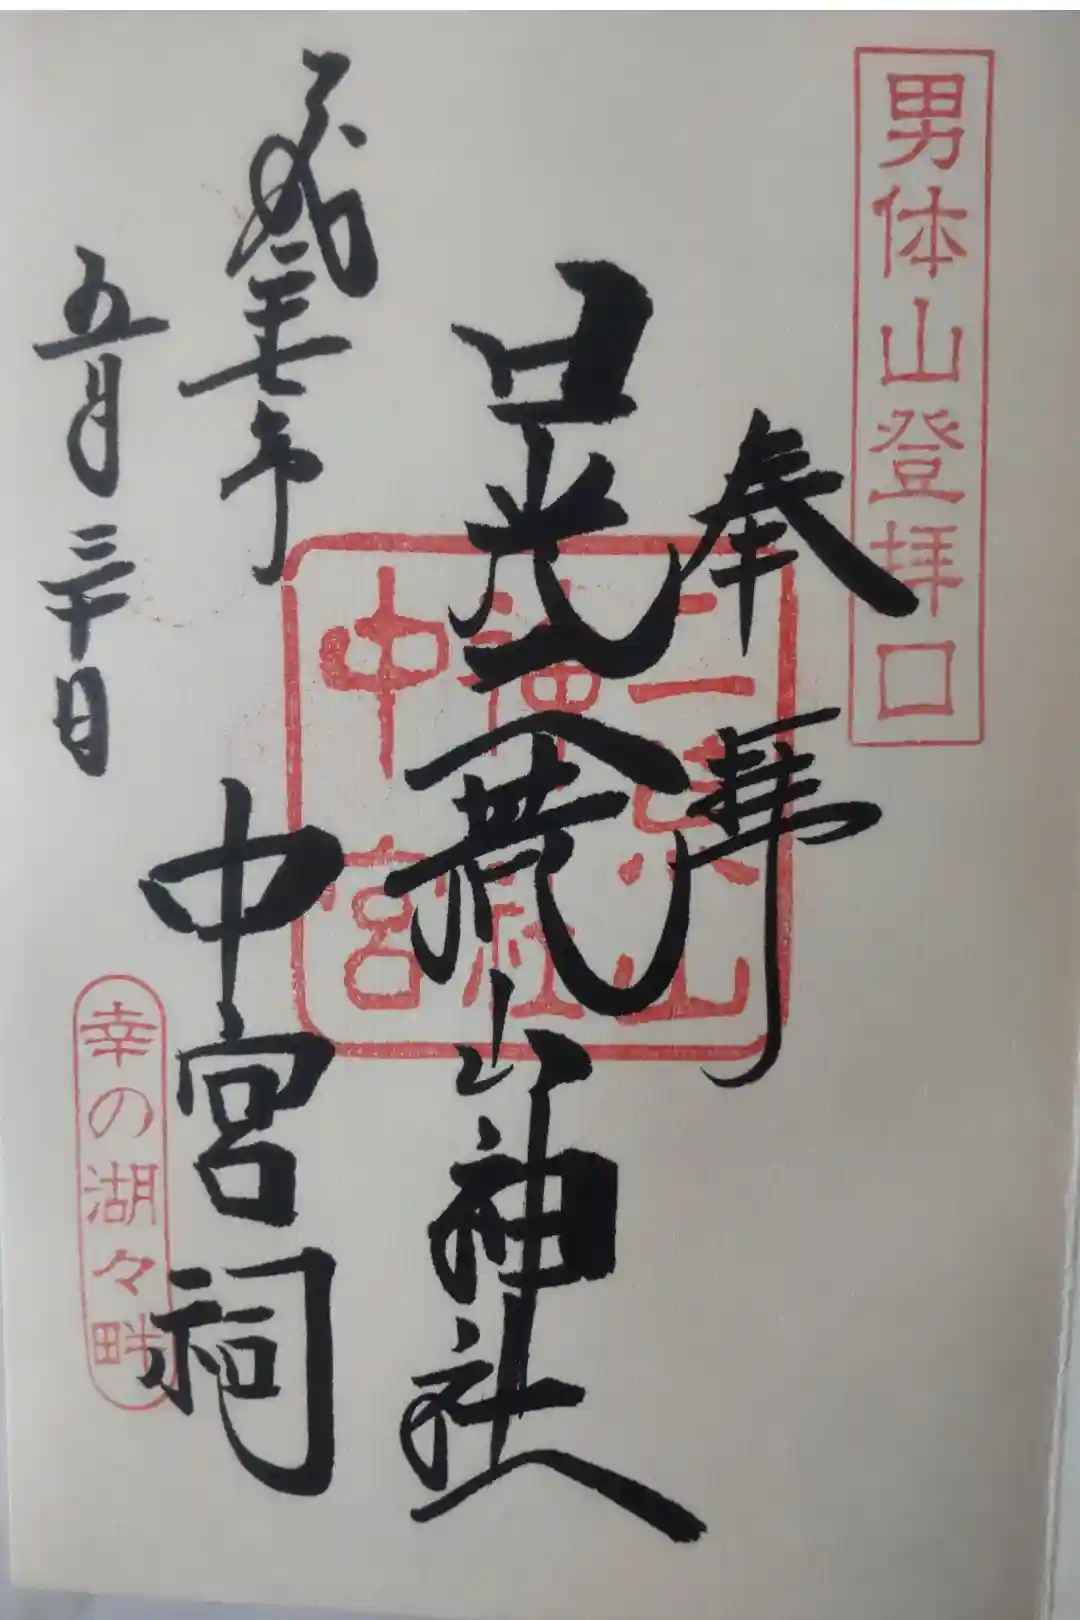 男体山登拝口
奉拝
二荒山
神社
中宮
日光二荒山神社
中宮祠
平成二十七年
五月三十日
幸の湖々畔